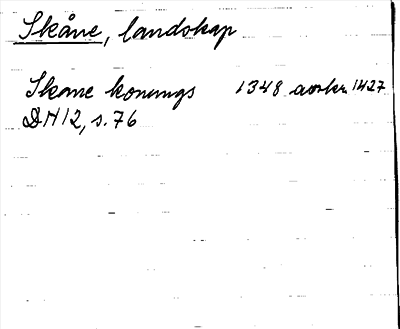 Skåne, landskap
Skane konungs 1348 avskr. 1427
DN 12, s. 76